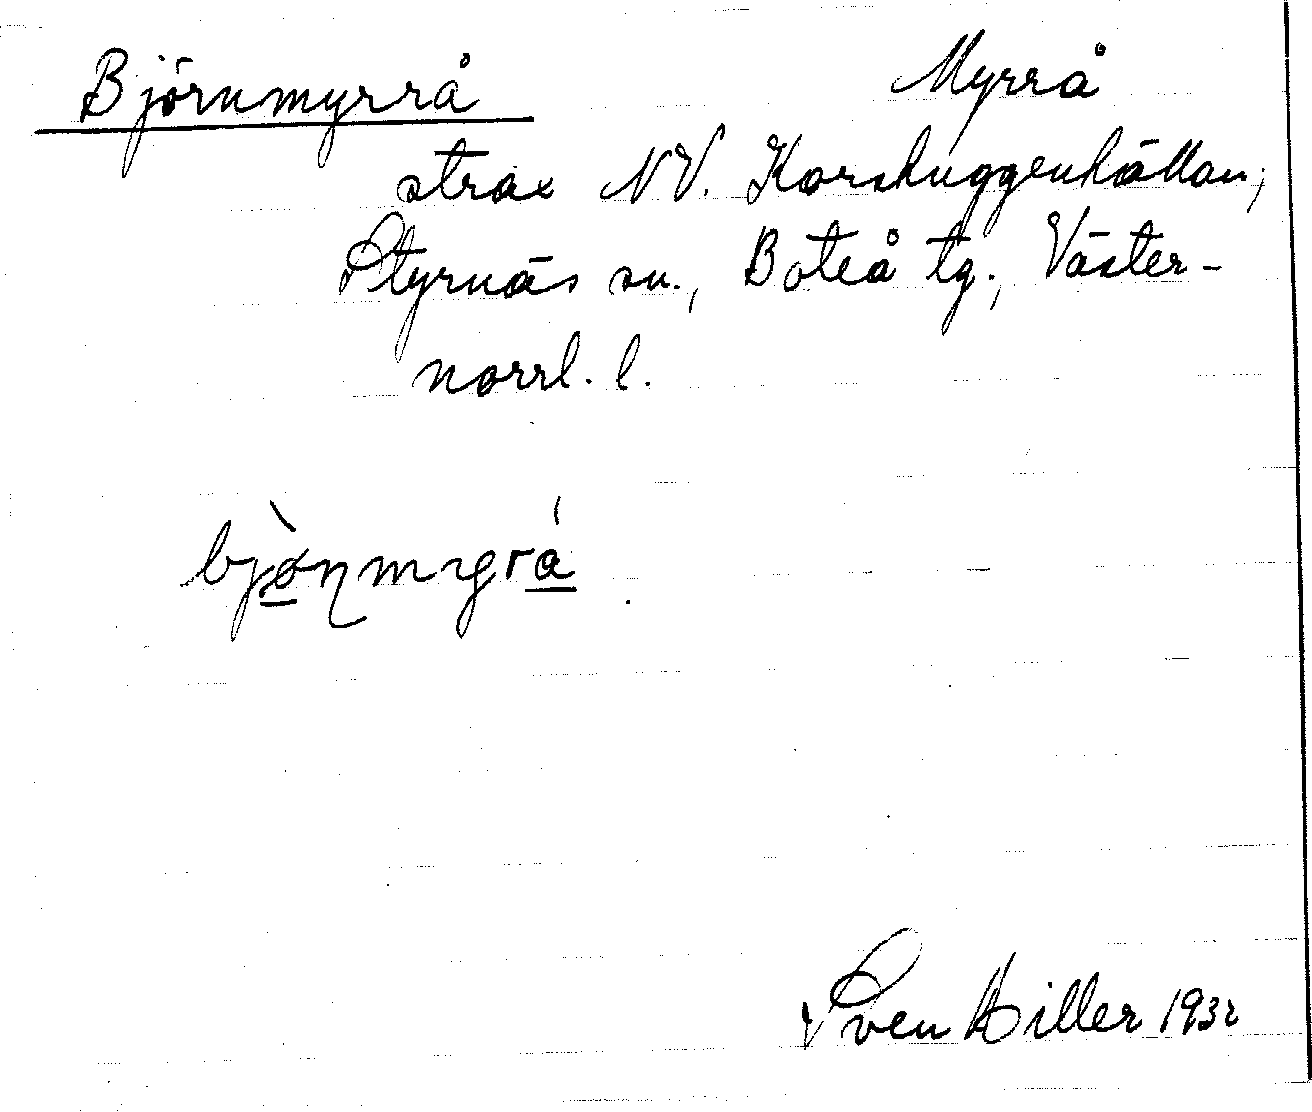 Björnmyrrå Myrrå
strax NV. Korshuggenhällan,
Styrnäs sn., Boteå tg., Väster-
norrl. l.
Sven Hiller 1932